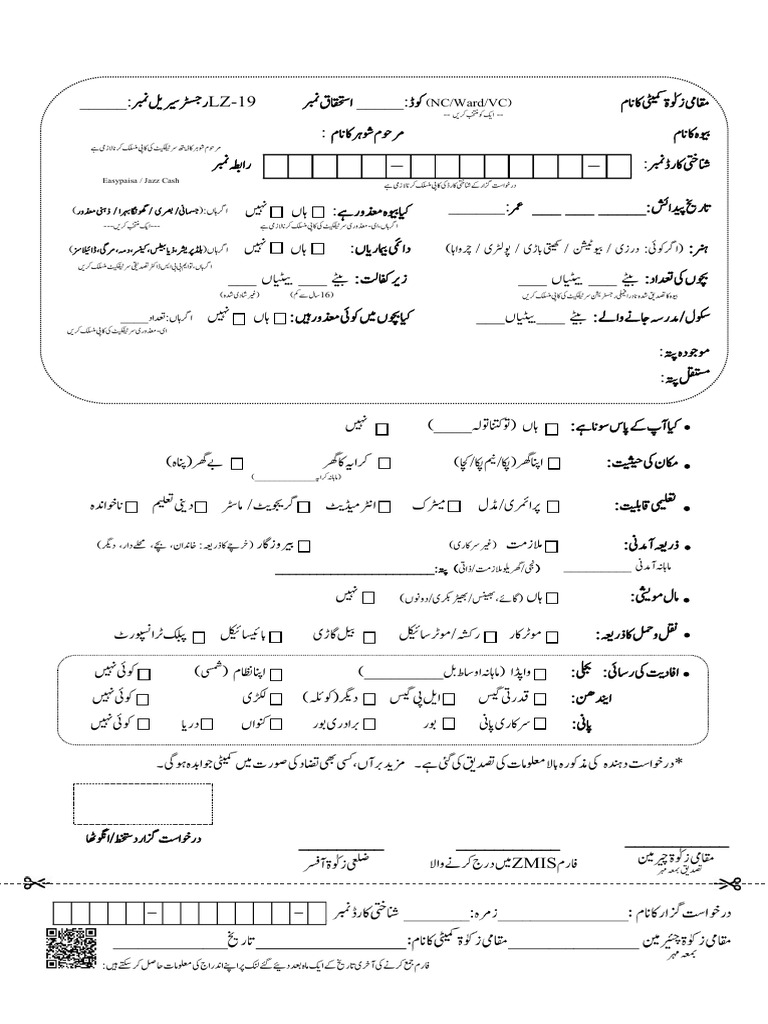 مقامی زکوٰۃ کمیٹی کا نام (NC/Ward/VC) کوڈ:______ استحقاق نمبر LZ-19 رجسٹر سیریل نمبر:______
-- ایک کو منتخب کریں --
بیوہ کا نام مرحوم شوہر کا نام :
مرحوم شوہر کا ڈیتھ سرٹیفکیٹ کی کاپی منسلک کرنا لازمی ہے
شناختی کارڈ نمبر: – – رابطہ نمبر
درخواست گزار کے شناختی کارڈ کی کاپی منسلک کرنا لازمی ہے Easypaisa / Jazz Cash
تاریخ پیدائش: ______ ___ ___ عمر:______ کیا بیوہ معذور ہے: ہاں نہیں اگر ہاں: (جسمانی/بصری / گونگا بہرا / ذہنی معذور)
اگر ہاں، ای-معذوری سرٹیفکیٹ کی کاپی منسلک کرنا لازمی ہے ---ایک منتخب کریں---
ہنر: (اگر کوئی: درزی / بیوٹیشن / کھیتی باڑی / پولٹری / چرواہا) دائمی بیماریاں: ہاں نہیں اگر ہاں(بلڈ پریشر، ذیابیطس، کینسر، دمہ، مرگی، ڈائیلاسز)
اگر ہاں، تو ایم بی بی ایس ڈاکٹر تصدیقی سرٹیفکیٹ منسلک کریں
بچوں کی تعداد: بیٹے ____ بیٹیاں ____ زیر کفالت: بیٹے ____ بیٹیاں ____
بیوہ کا تصدیق شدہ نادرا فیملی رجسٹریشن سرٹیفکیٹ کی کاپی منسلک کریں (16 سال سے کم) (غیر شادی شدہ)
سکول/مدرسہ جانے والے: بیٹے ____ بیٹیاں____ کیا بچوں میں کوئی معذور ہیں: ہاں نہیں اگر ہاں: تعداد_____
ای-معذوری سرٹیفکیٹ کی کاپی منسلک کریں
موجودہ پتہ :
مستقل پتہ :
• کیا آپ کے پاس سونا ہے: ہاں (تو کتنا تولہ_____) نہیں
• مکان کی حیثیت: اپنا گھر(پکا/نیم پکا/کچا) کرایہ کا گھر بے گھر (پناہ)
(ماہانہ کرایہ______________)
• تعلیمی قابلیت: پرائمری/مڈل میٹرک انٹر میڈیٹ گریجویٹ/ ماسٹر دینی تعلیم ناخواندہ
• ذریعہ آمدنی: ملازمت (غیر سرکاری) بیروزگار (خرچے کا ذریعہ: خاندان، بچے، محلے دار، دیگر)
ماہانہ آمدنی __________ (نجی/گھریلو ملازمت/ذاتی) پتہ:______________________
• مال مویشی: ہاں (گائے، بھینس/بھیڑ بکری/دونوں) نہیں
• نقل و حمل کا ذریعہ: موٹر کار رکشہ/موٹر سائیکل بیل گاڑی بائیسائیکل پبلک ٹرانسپورٹ
• افادیت کی رسائی: بجلی: واپڈا (ماہانہ اوسط بل__________) اپنا نظام (شمسی) کوئی نہیں
ایندھن: قدرتی گیس ایل پی گیس دیگر (کوئلہ) لکڑی کوئی نہیں
پانی: سرکاری پانی بور برادری بور کنواں دریا کوئی نہیں
*درخواست دہندہ کی مذکورہ بالا معلومات کی تصدیق کی گئی ہے۔ مزید برآں، کسی بھی تضاد کی صورت میں کمیٹی جوابدہ ہو گی۔
درخواست گزار دستخط/انگوٹھا
مقامی زکوٰۃ چیرمین فارم ZMIS میں درج کرنے والا ضلعی زکوٰۃ آفسر
تصدیق بمعہ مہر
درخواست گزار کا نام :____________ زمرہ:__________ شناختی کارڈ نمبر – –
مقامی زکوٰۃ چئیرمین____________________مقامی زکوٰۃ کمیٹی کا نام:______________________ تاریخ ________________
بمعہ مہر
فارم جمع کرنے کی آخری تاریخ کے ایک ماہ بعد دیئے گئے لنک پر اپنے اندراج کی معلومات حاصل کر سکتے ہیں: